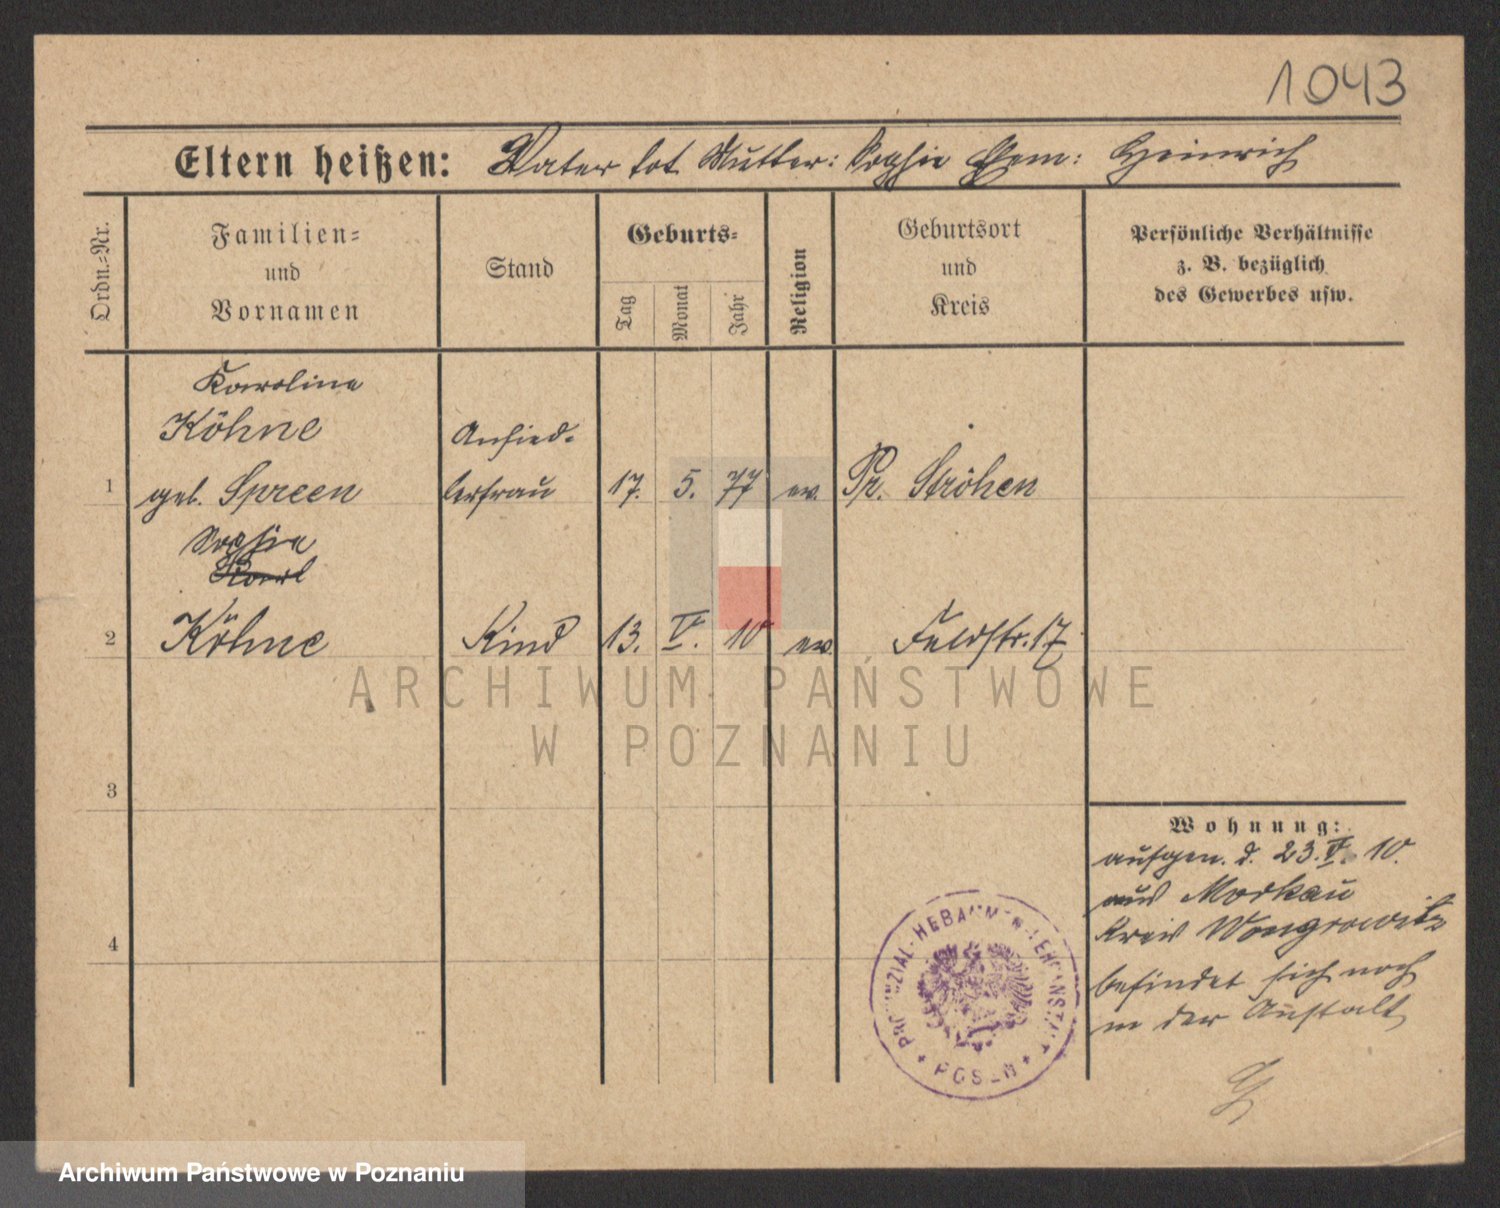 1043
Eltern heißen: Vater tot Mutter: Sophie Heinrich
Ordn.=Nr.
Familien=
und
Vornamen
Stand
Geburts=
Tag
Monat
Jahr
Religion
Geburtsort
und
Kreis
Persönliche Verhältnisse
z. B. bezüglich
des Gewerbes usw.
Karoline
Köhne Ansied-
1 geb. Spreen lerfrau 17. 5. 77 ev. Pr. Ströhen
Sophie
Karl
2 Köhne Kind 13. V. 10 ev. Feldstr. 17
ARCHIWUM PAŃSTWOWE
W POZNANIU
3
4
Wohnung:
aufgen. d. 23. V. 10.
aus Morkau
Kreis Wongrowitz
befindet sich noch
in der Anstalt
PROVINZIAL-HEBAMMEN-LEHRANSTALT
POSEN
Archiwum Państwowe w Poznaniu